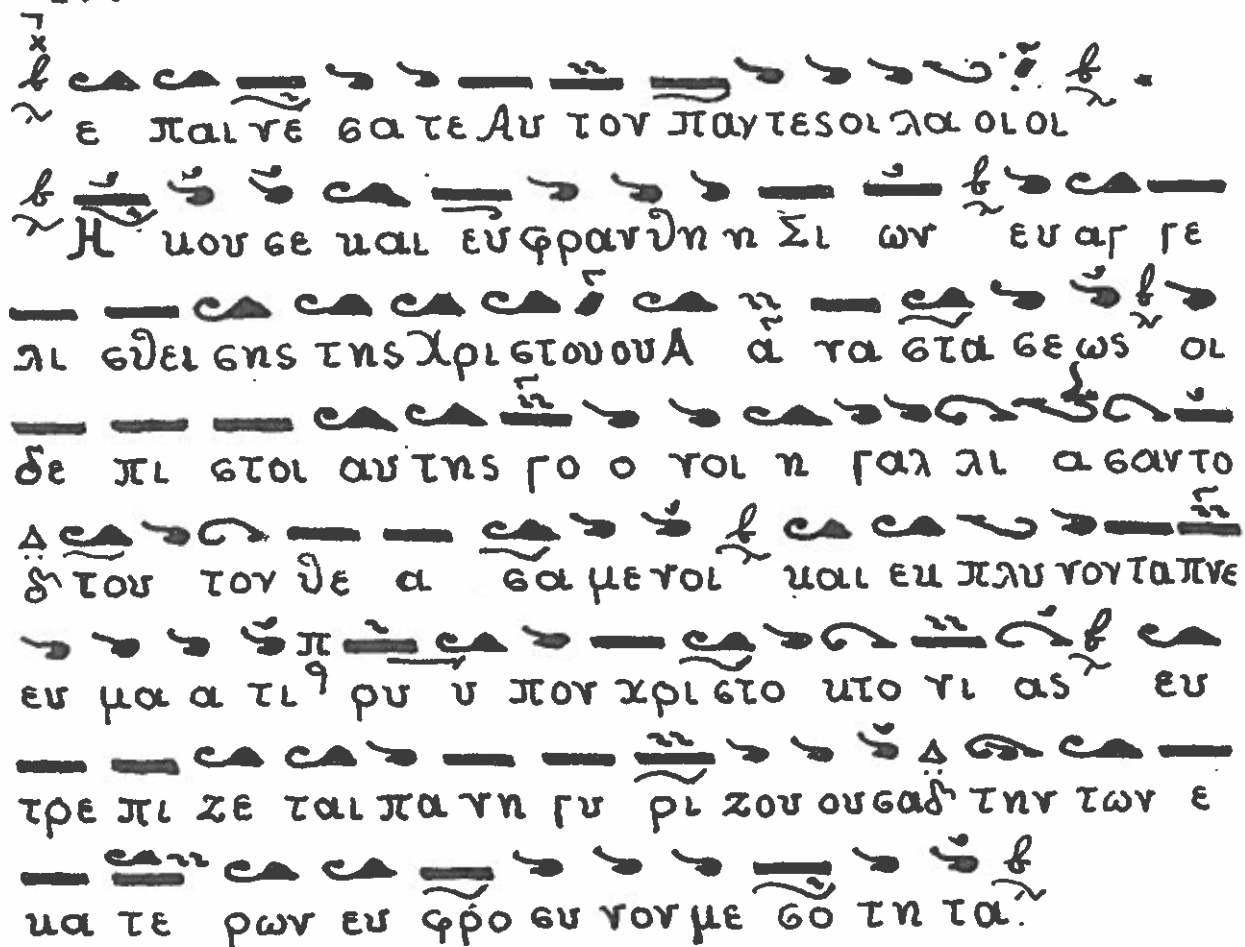 ε παι νε σα τε Αυ τον παντες οι λα οι οι
Η κου σε και ευ φραν θη η Σι ων ευ αγ γε
λι σθει σης της Χρι στου ου Α α να στα σε ως οι
δε πι στοι αυ της γο ο νοι η γαλ λι α σαν το
Δ δι του τον θε α σα με νοι και εκ πλυ νον τα πνε
ευ μα α τι π q ρυ υ πον χρι στο κτο νι ας ευ
τρε πι ζε ται πα νη γυ ρι ζου ου σα Δ δι την των ε
κα τε ρων ευ φρο συ νον με σο τη τα.